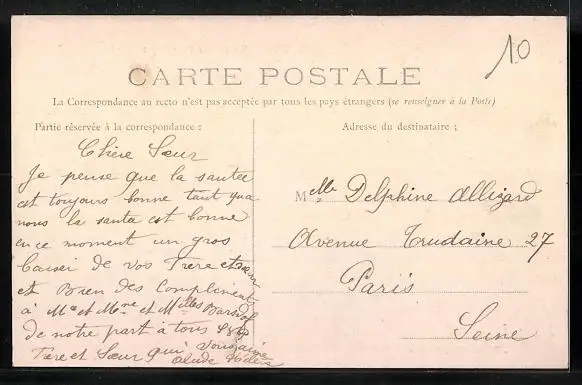 10
CARTE POSTALE
La Correspondance au recto n'est pas acceptée par tous les pays étrangers (se renseigner à la Poste)
Partie réservée à la correspondance :
Adresse du destinataire ;
Chère Sœur
Je pense que la santée
est toujours bonne tant qua
nous la santa est bonne
en ce moment un gros
baiser de vos Frère et
et Bien des Compliments
à Mr et Mme et Mlles
de notre part à tous
Frère et Sœur qui vous aime
Melle Delphine Allizard
Avenue Trudaine 27
Paris
Seine